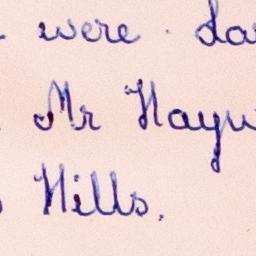 were da
Mr Hayw
Hills.